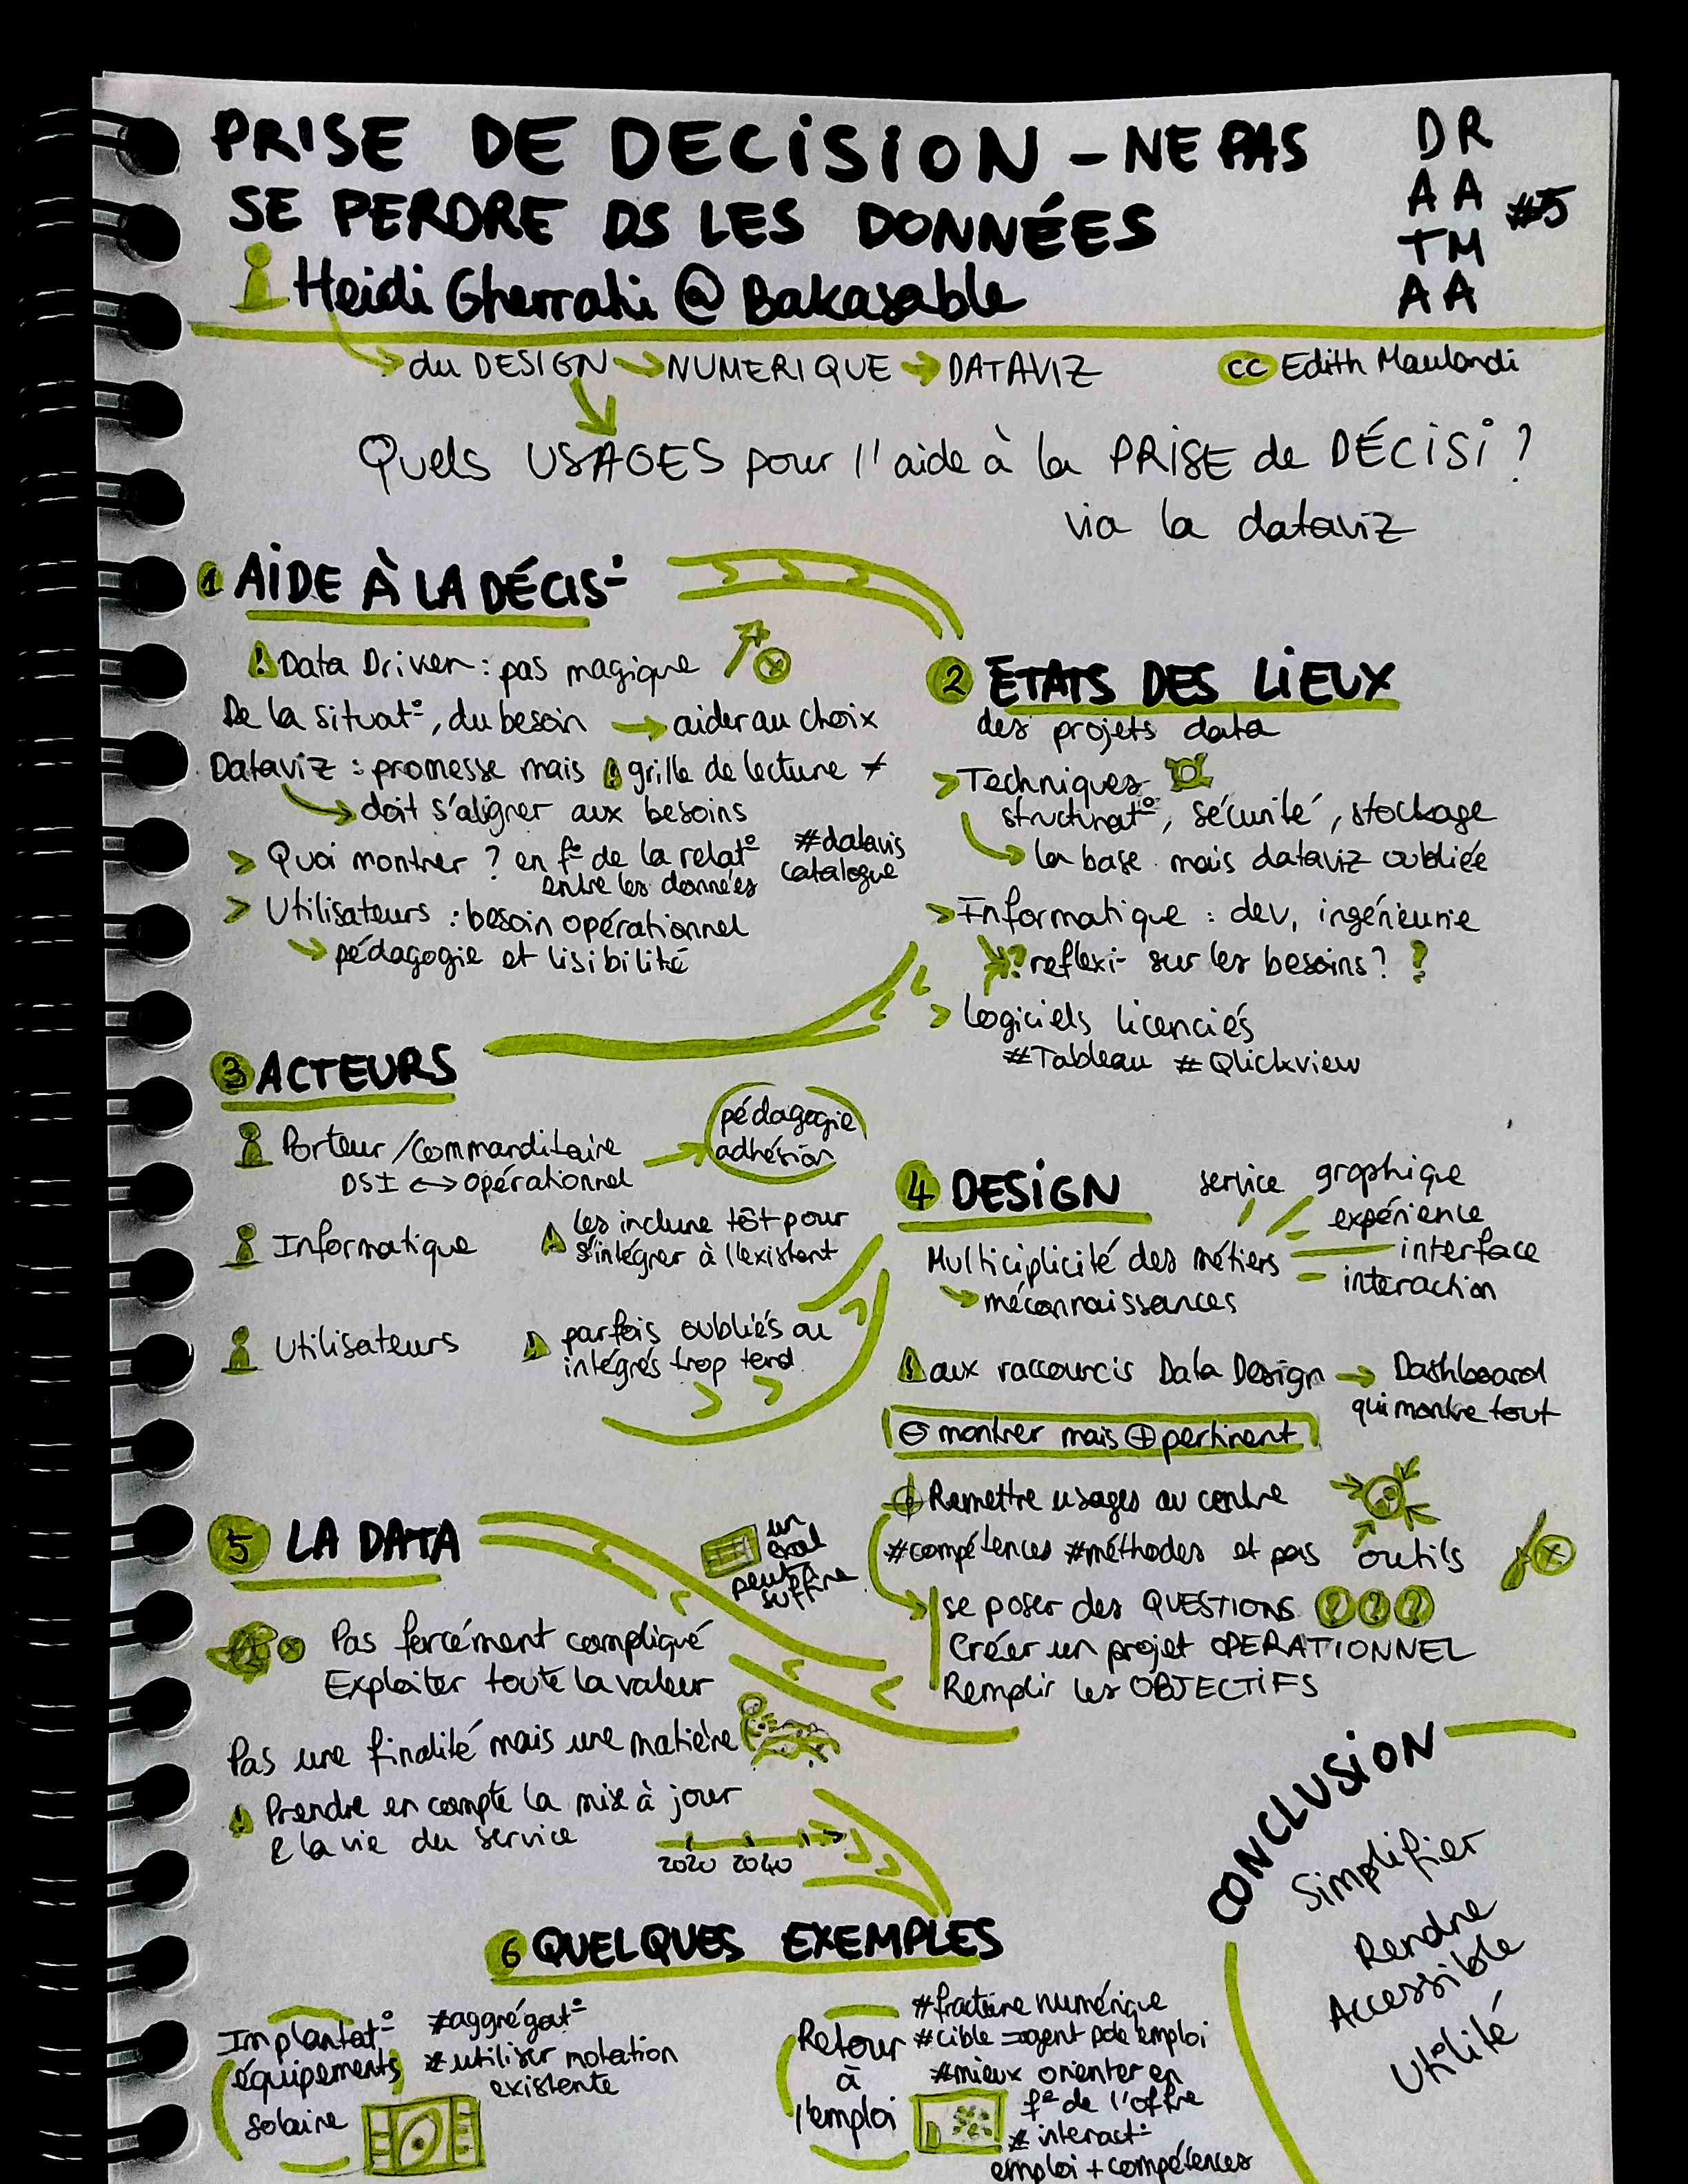 PRISE DE DECISION - NE PAS
SE PERDRE DS LES DONNÉES
Heidi Gherrahi @ Bakasable
DR
AA
TM
AA
#5
du DESIGN → NUMERIQUE → DATAVIZ
cc Edith Maulandi
Quels USAGES pour l'aide à la PRISE de DÉCISI ?
via la dataviz
1 AIDE À LA DÉCIS°
! Data Driven : pas magique
De la situat°, du besoin → aider au choix
Dataviz : promesse mais ! grille de lecture ≠
→ doit s'aligner aux besoins
> Quoi montrer ? en f° de la relat°
entre les données
#datavis
catalogue
> Utilisateurs : besoin opérationnel
→ pédagogie et lisibilité
2 ETATS DES LIEUX
des projets data
> Techniques
structurat°, sécurité, stockage
→ la base mais dataviz oubliée
> Informatique : dev, ingénieurie
? reflexi- sur les besoins ? ?
> Logiciels licenciés
#Tableau #Qlickview
3 ACTEURS
Porteur / Commanditaire
DSI ↔ opérationnel
→ pédagogie
adhésion
Informatique
! les inclure tôt pour
s'intégrer à l'existant
Utilisateurs
! parfois oubliés ou
intégrés trop tard
4 DESIGN
service
graphique
expérience
interface
interaction
Multiciplicité des métiers
→ méconnaissances
! aux raccourcis Data Design → Dashboard
qui montre tout
⊖ montrer mais ⊕ pertinent
Remettre usages au centre
#compétences #méthodes et pas outils
se poser des QUESTIONS ? ? ?
Créer un projet OPERATIONNEL
Remplir les OBJECTIFS
5 LA DATA
un
excel
peut
suffire
Pas forcément compliqué
Exploiter toute la valeur
Pas une finalité mais une matière
! Prendre en compte la mise à jour
& la vie du service
2020 2040
6 QUELQUES EXEMPLES
Implantat°
équipements
solaire
#aggrégat°
#utiliser notation
existente
Retour
à
l'emploi
#fracture numérique
#cible = agent pole emploi
#mieux orienter en
f° de l'offre
# interact°
emploi + compétences
CONCLUSION
Simplifier
Rendre
Accessible
Utilité